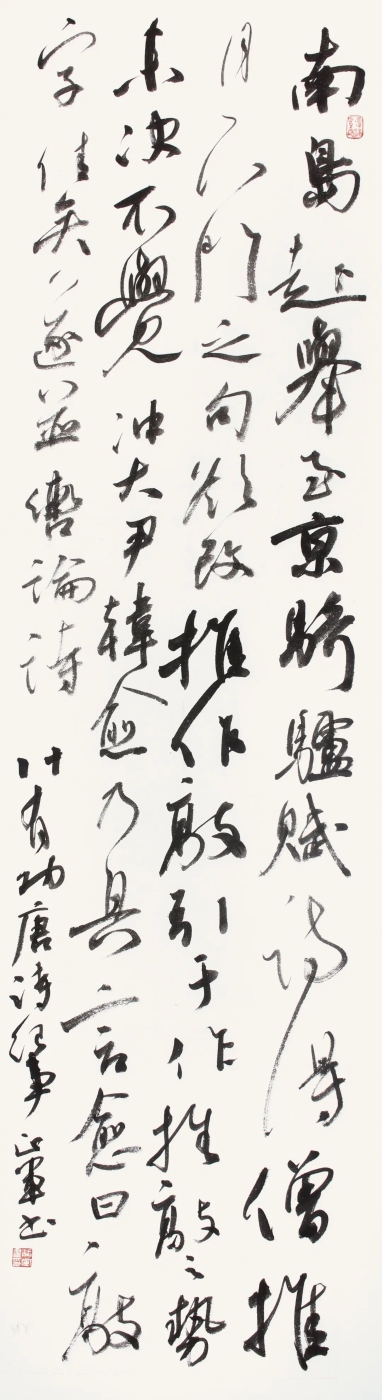 南島赴舉至京騎驢賦詩得僧推
月下門之句欲改推作敲引手作推敲之勢
未決不覺冲大尹韓愈乃具言愈曰敲
字佳矣遂並轡論詩
計有功唐詩紀事 书